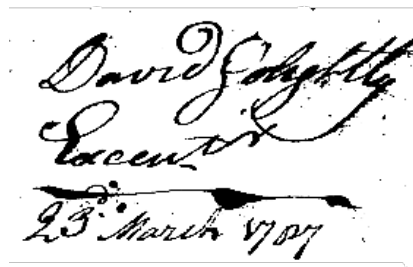 David Golightly
Execut.r
23 March 1787